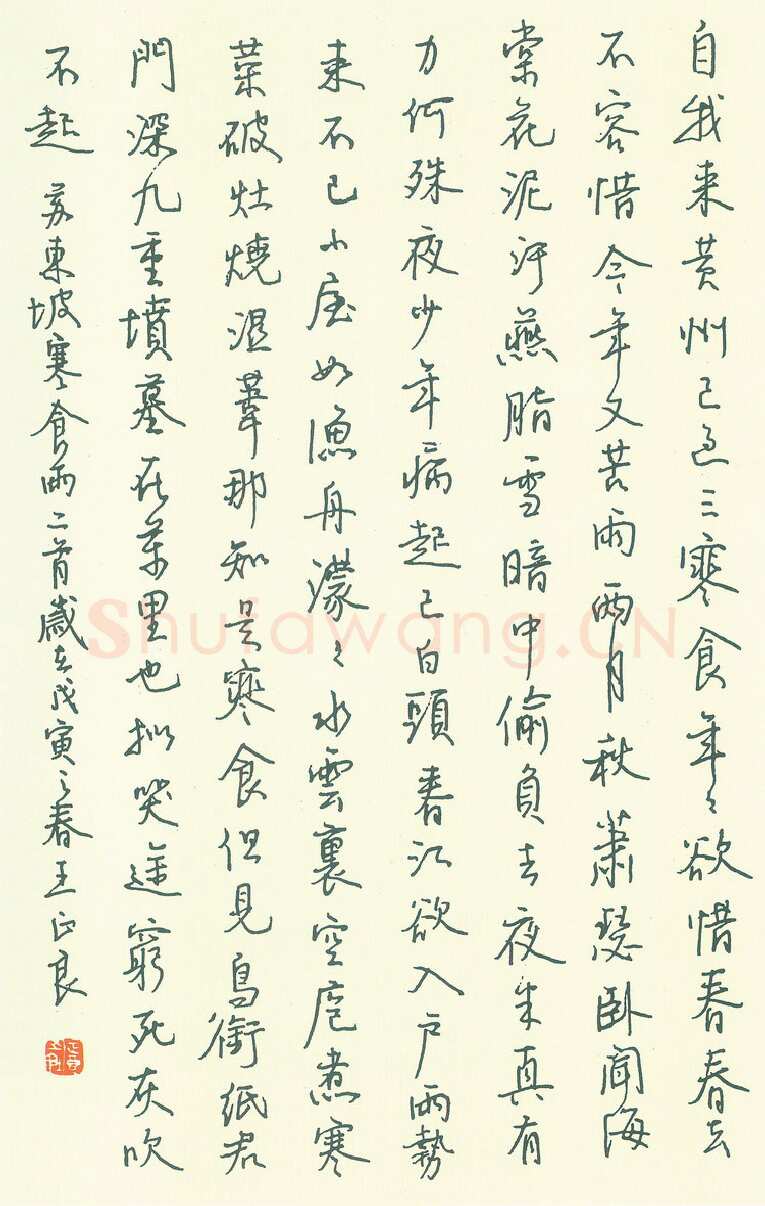 自我來黃州已過三寒食年々欲惜春春去
不容惜今年又苦雨兩月秋蕭瑟卧聞海
棠花泥汙燕脂雪暗中偷負去夜半真有
力何殊夜少年病起已白頭春江欲入戶雨勢
來不已小屋如漁舟濛々水雲裏空庖煮寒
菜破灶燒濕葦那知是寒食但見烏銜紙君
門深九重墳墓在萬里也拟哭途窮死灰吹
不起 蘇東坡寒食雨二首歲在戊寅之春王正良
Shufawang.CN